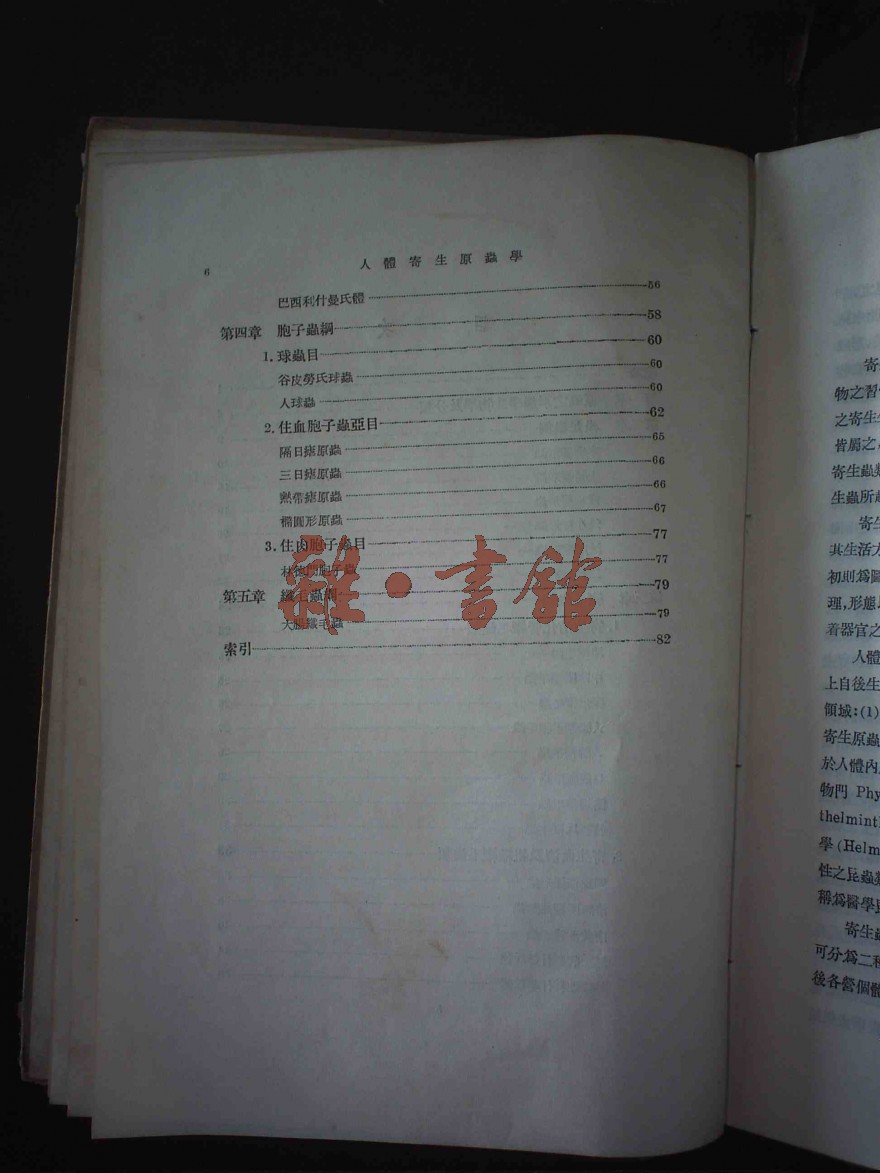 6
人體寄生原蟲學
巴西利什曼氏體 56
第四章 胞子蟲綱 58
1. 球蟲目 60
谷皮勞氏球蟲 60
人球蟲 60
2. 住血胞子蟲亞目 62
隔日瘧原蟲 65
三日瘧原蟲 66
熱帶瘧原蟲 66
橢圓形原蟲 67
3. 住肉胞子蟲目 77
林德 胞子蟲 77
第五章 纖毛蟲綱 79
大腸纖毛蟲 79
索引 82
雜·書舘
寄
物之習
之寄生
皆屬之
寄生蟲
生蟲所
寄生
其生活
初則爲
理,形態
着器官之
人體
上自後生
領域:(1)
寄生原蟲
於人體內
物門 Phy
thelmint
學(Helm
性之昆蟲
稱爲醫學
寄生蟲
可分爲二
後各營個